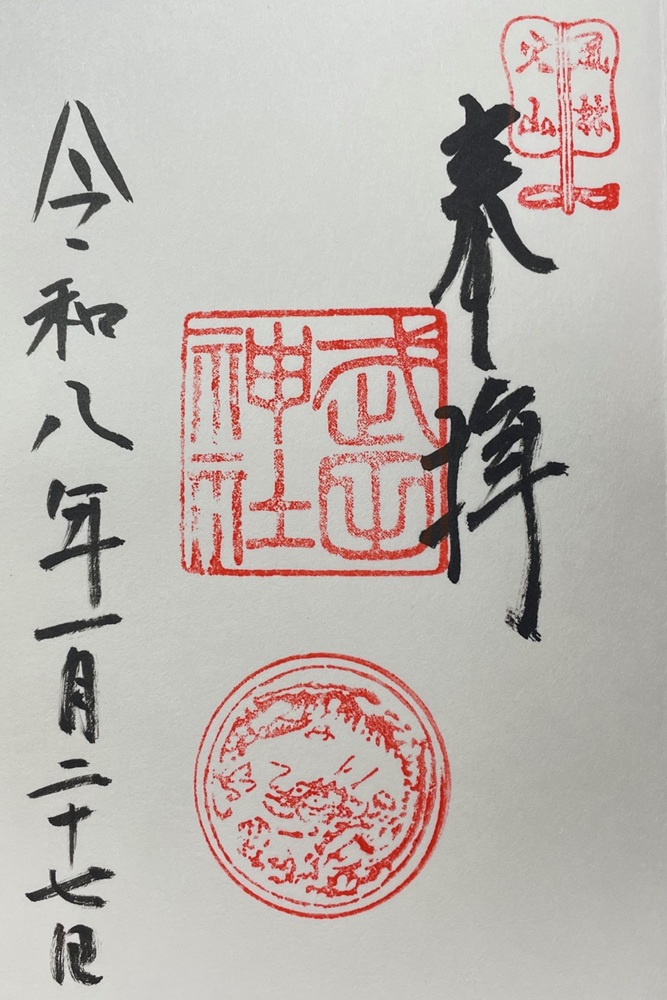 風林
火山
奉拝
武田
神社
令和八年一月二十七日